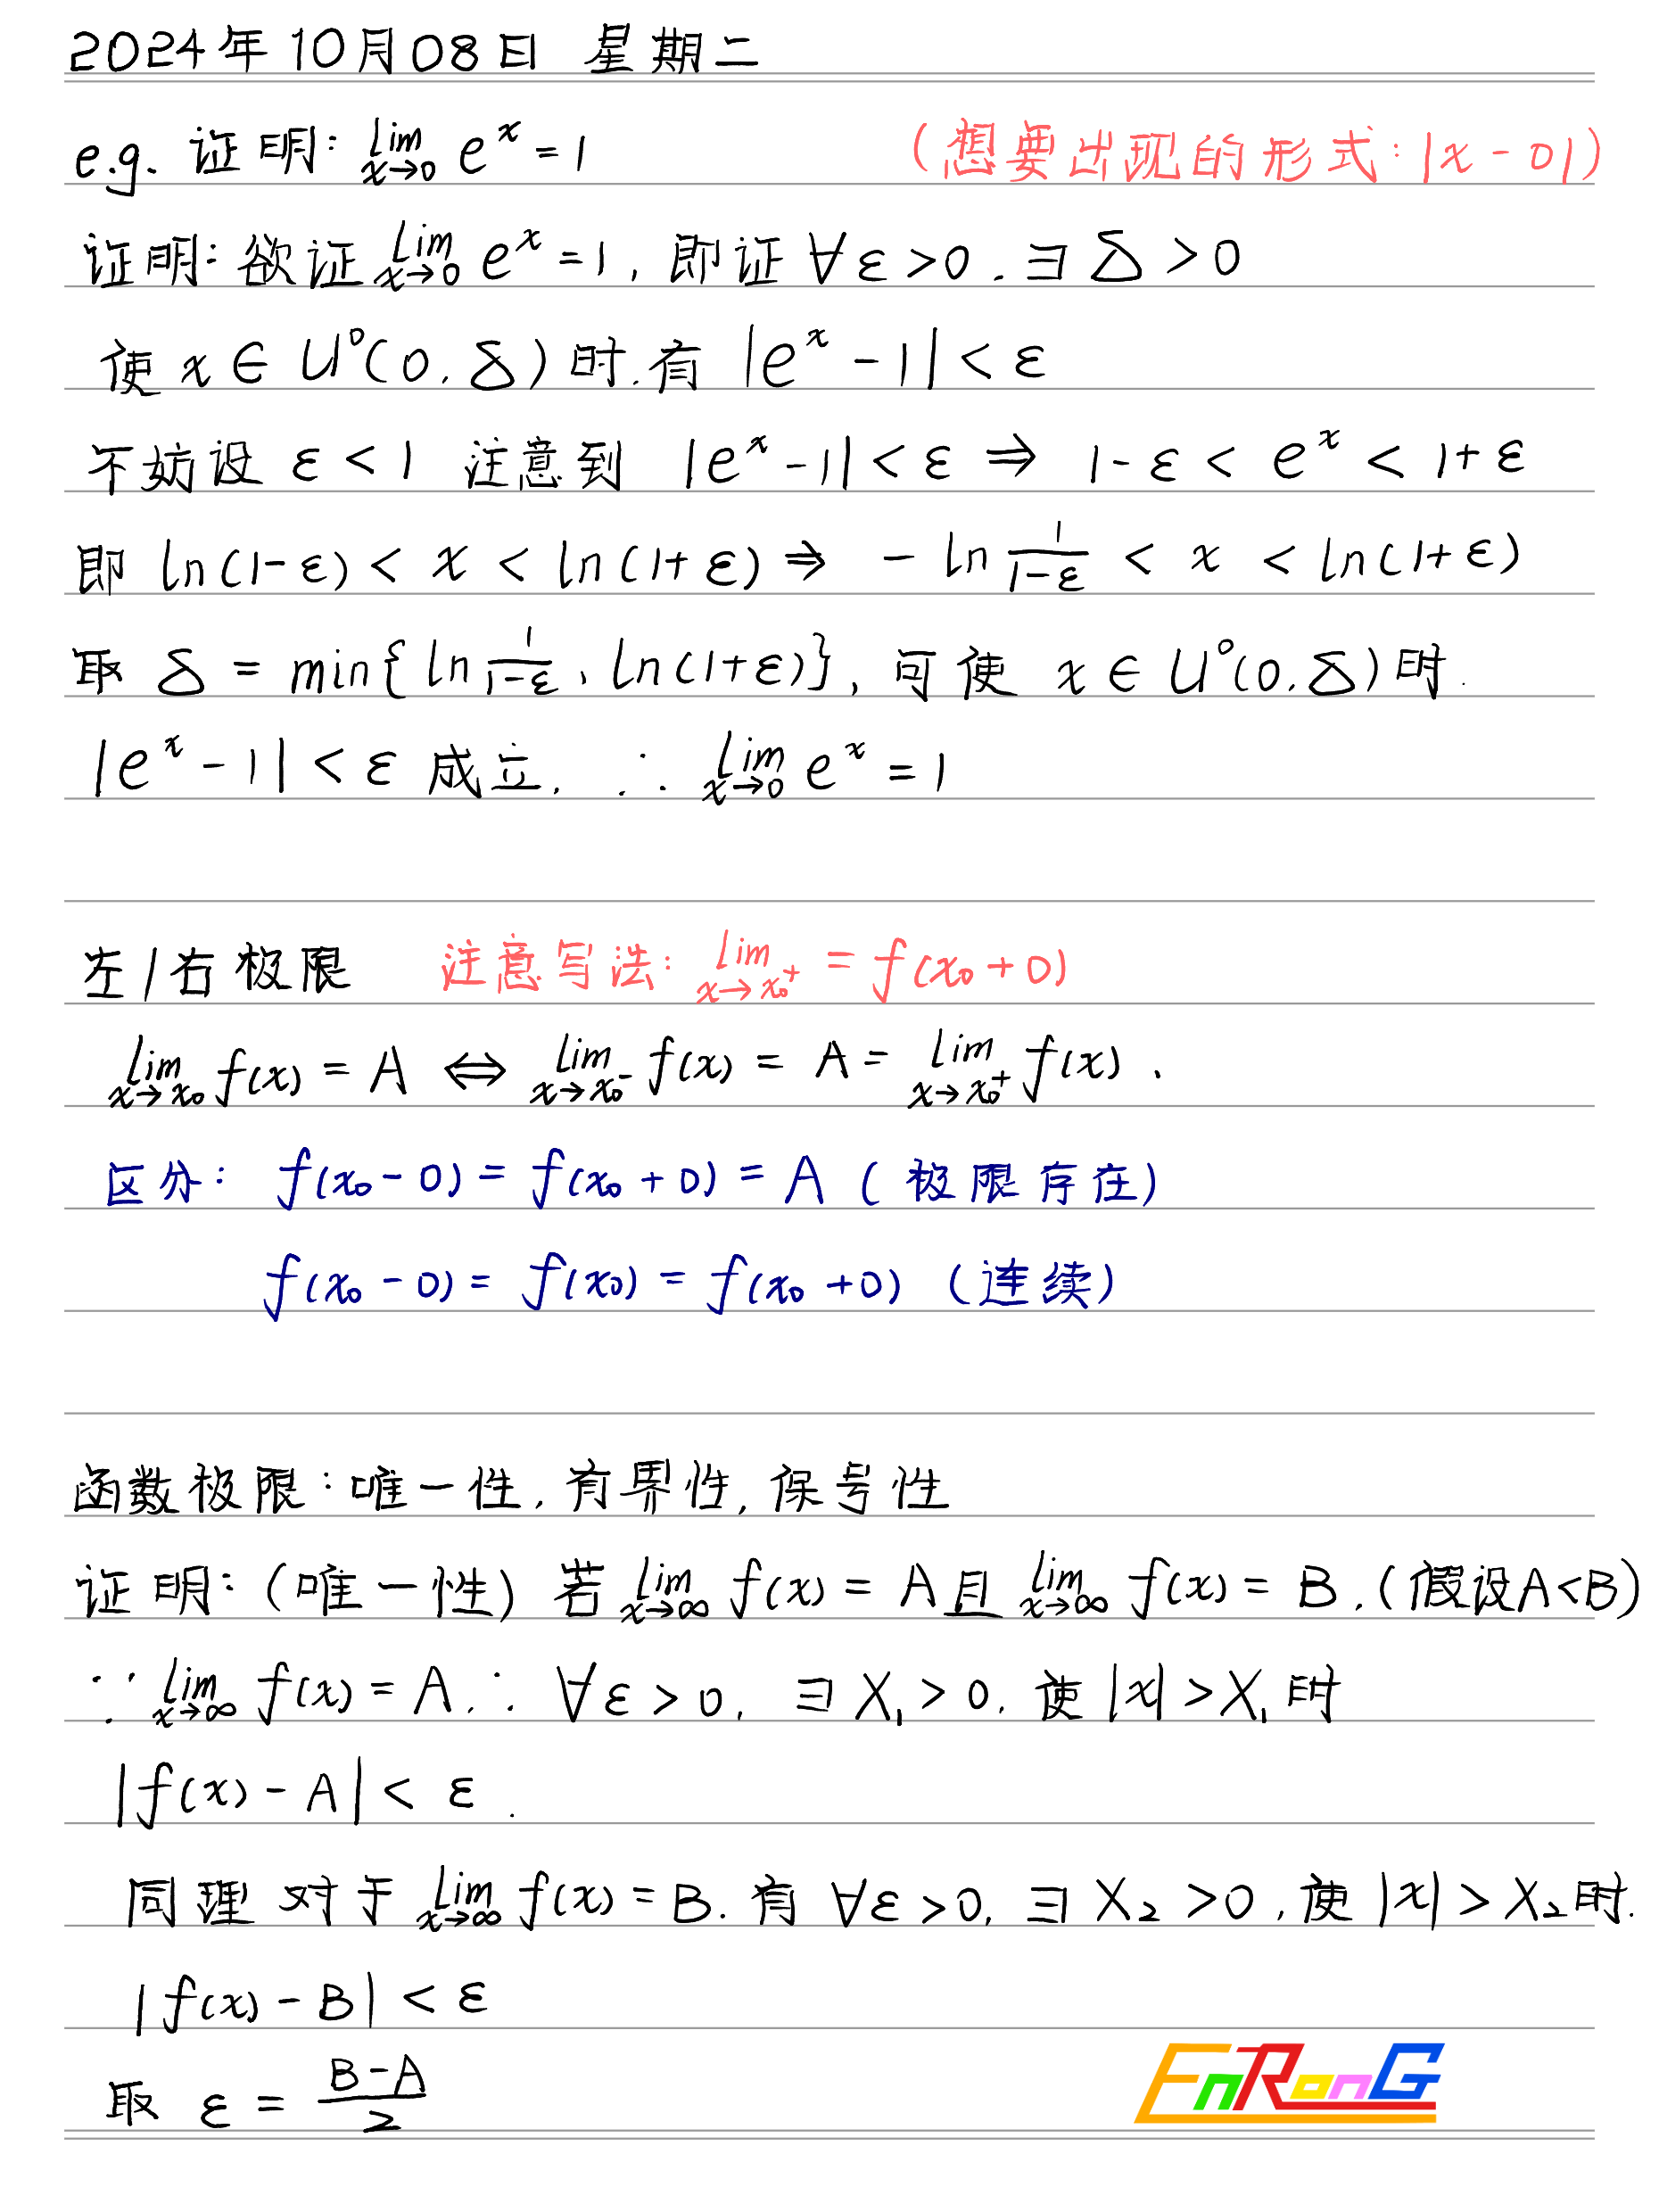 2024年10月08日 星期二
e.g. 证明: lim_{x→0} e^x = 1 (想要出现的形式: |x - 0|)
证明: 欲证 lim_{x→0} e^x = 1, 即证 ∀ε > 0. ∃ δ > 0
使 x ∈ U°(0, δ) 时. 有 |e^x - 1| < ε
不妨设 ε < 1 注意到 |e^x - 1| < ε ⇒ 1 - ε < e^x < 1 + ε
即 ln(1-ε) < x < ln(1+ε) ⇒ - ln \frac{1}{1-ε} < x < ln(1+ε)
取 δ = min{ln \frac{1}{1-ε}, ln(1+ε)}, 可使 x ∈ U°(0, δ) 时.
|e^x - 1| < ε 成立. ∴ lim_{x→0} e^x = 1
左/右极限 注意写法: lim_{x→x₀⁺} = f(x₀+0)
lim_{x→x₀} f(x) = A ⇔ lim_{x→x₀⁻} f(x) = A = lim_{x→x₀⁺} f(x).
区分: f(x₀-0) = f(x₀+0) = A (极限存在)
f(x₀-0) = f(x₀) = f(x₀+0) (连续)
函数极限: 唯一性, 有界性, 保号性
证明: (唯一性) 若 lim_{x→∞} f(x) = A 且 lim_{x→∞} f(x) = B. (假设A<B)
∵ lim_{x→∞} f(x) = A. ∴ ∀ε > 0, ∃ X₁ > 0. 使 |x| > X₁ 时
|f(x) - A| < ε.
同理 对于 lim_{x→∞} f(x) = B. 有 ∀ε > 0, ∃ X₂ > 0, 使 |x| > X₂ 时.
|f(x) - B| < ε
取 ε = \frac{B-A}{2}
EnRonG